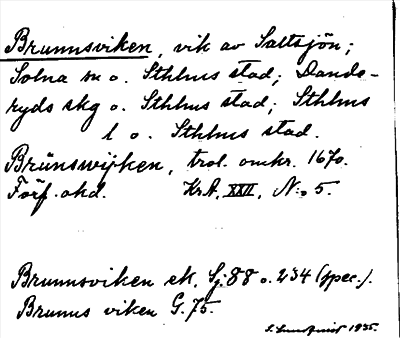 Brunnsviken, vik av Saltsjön;
Solna sn o. Sthlms stad; Dande-
ryds skg o. Sthlms stad; Sthlms
l o. Sthlms stad.
Brünswijken, trol. omkr. 1670.
Förf. okd. KrA, XXII, N:o 5.
Brunnsviken ek. Sj. 88 o. 234 (spec.).
Brunns viken G. 75.
S. Lundqvist 1935.